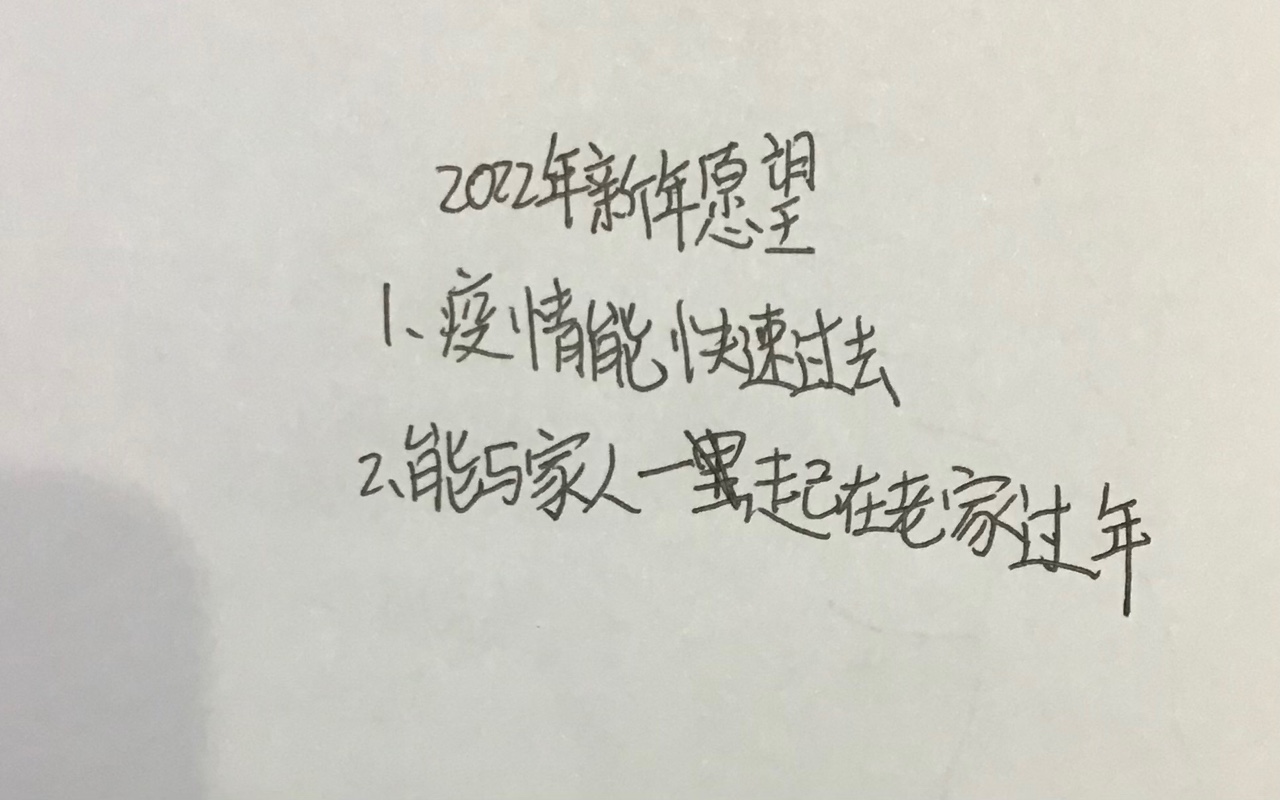 2022年新年愿望
1、疫情能快速过去
2、能与家人一起在老家过年